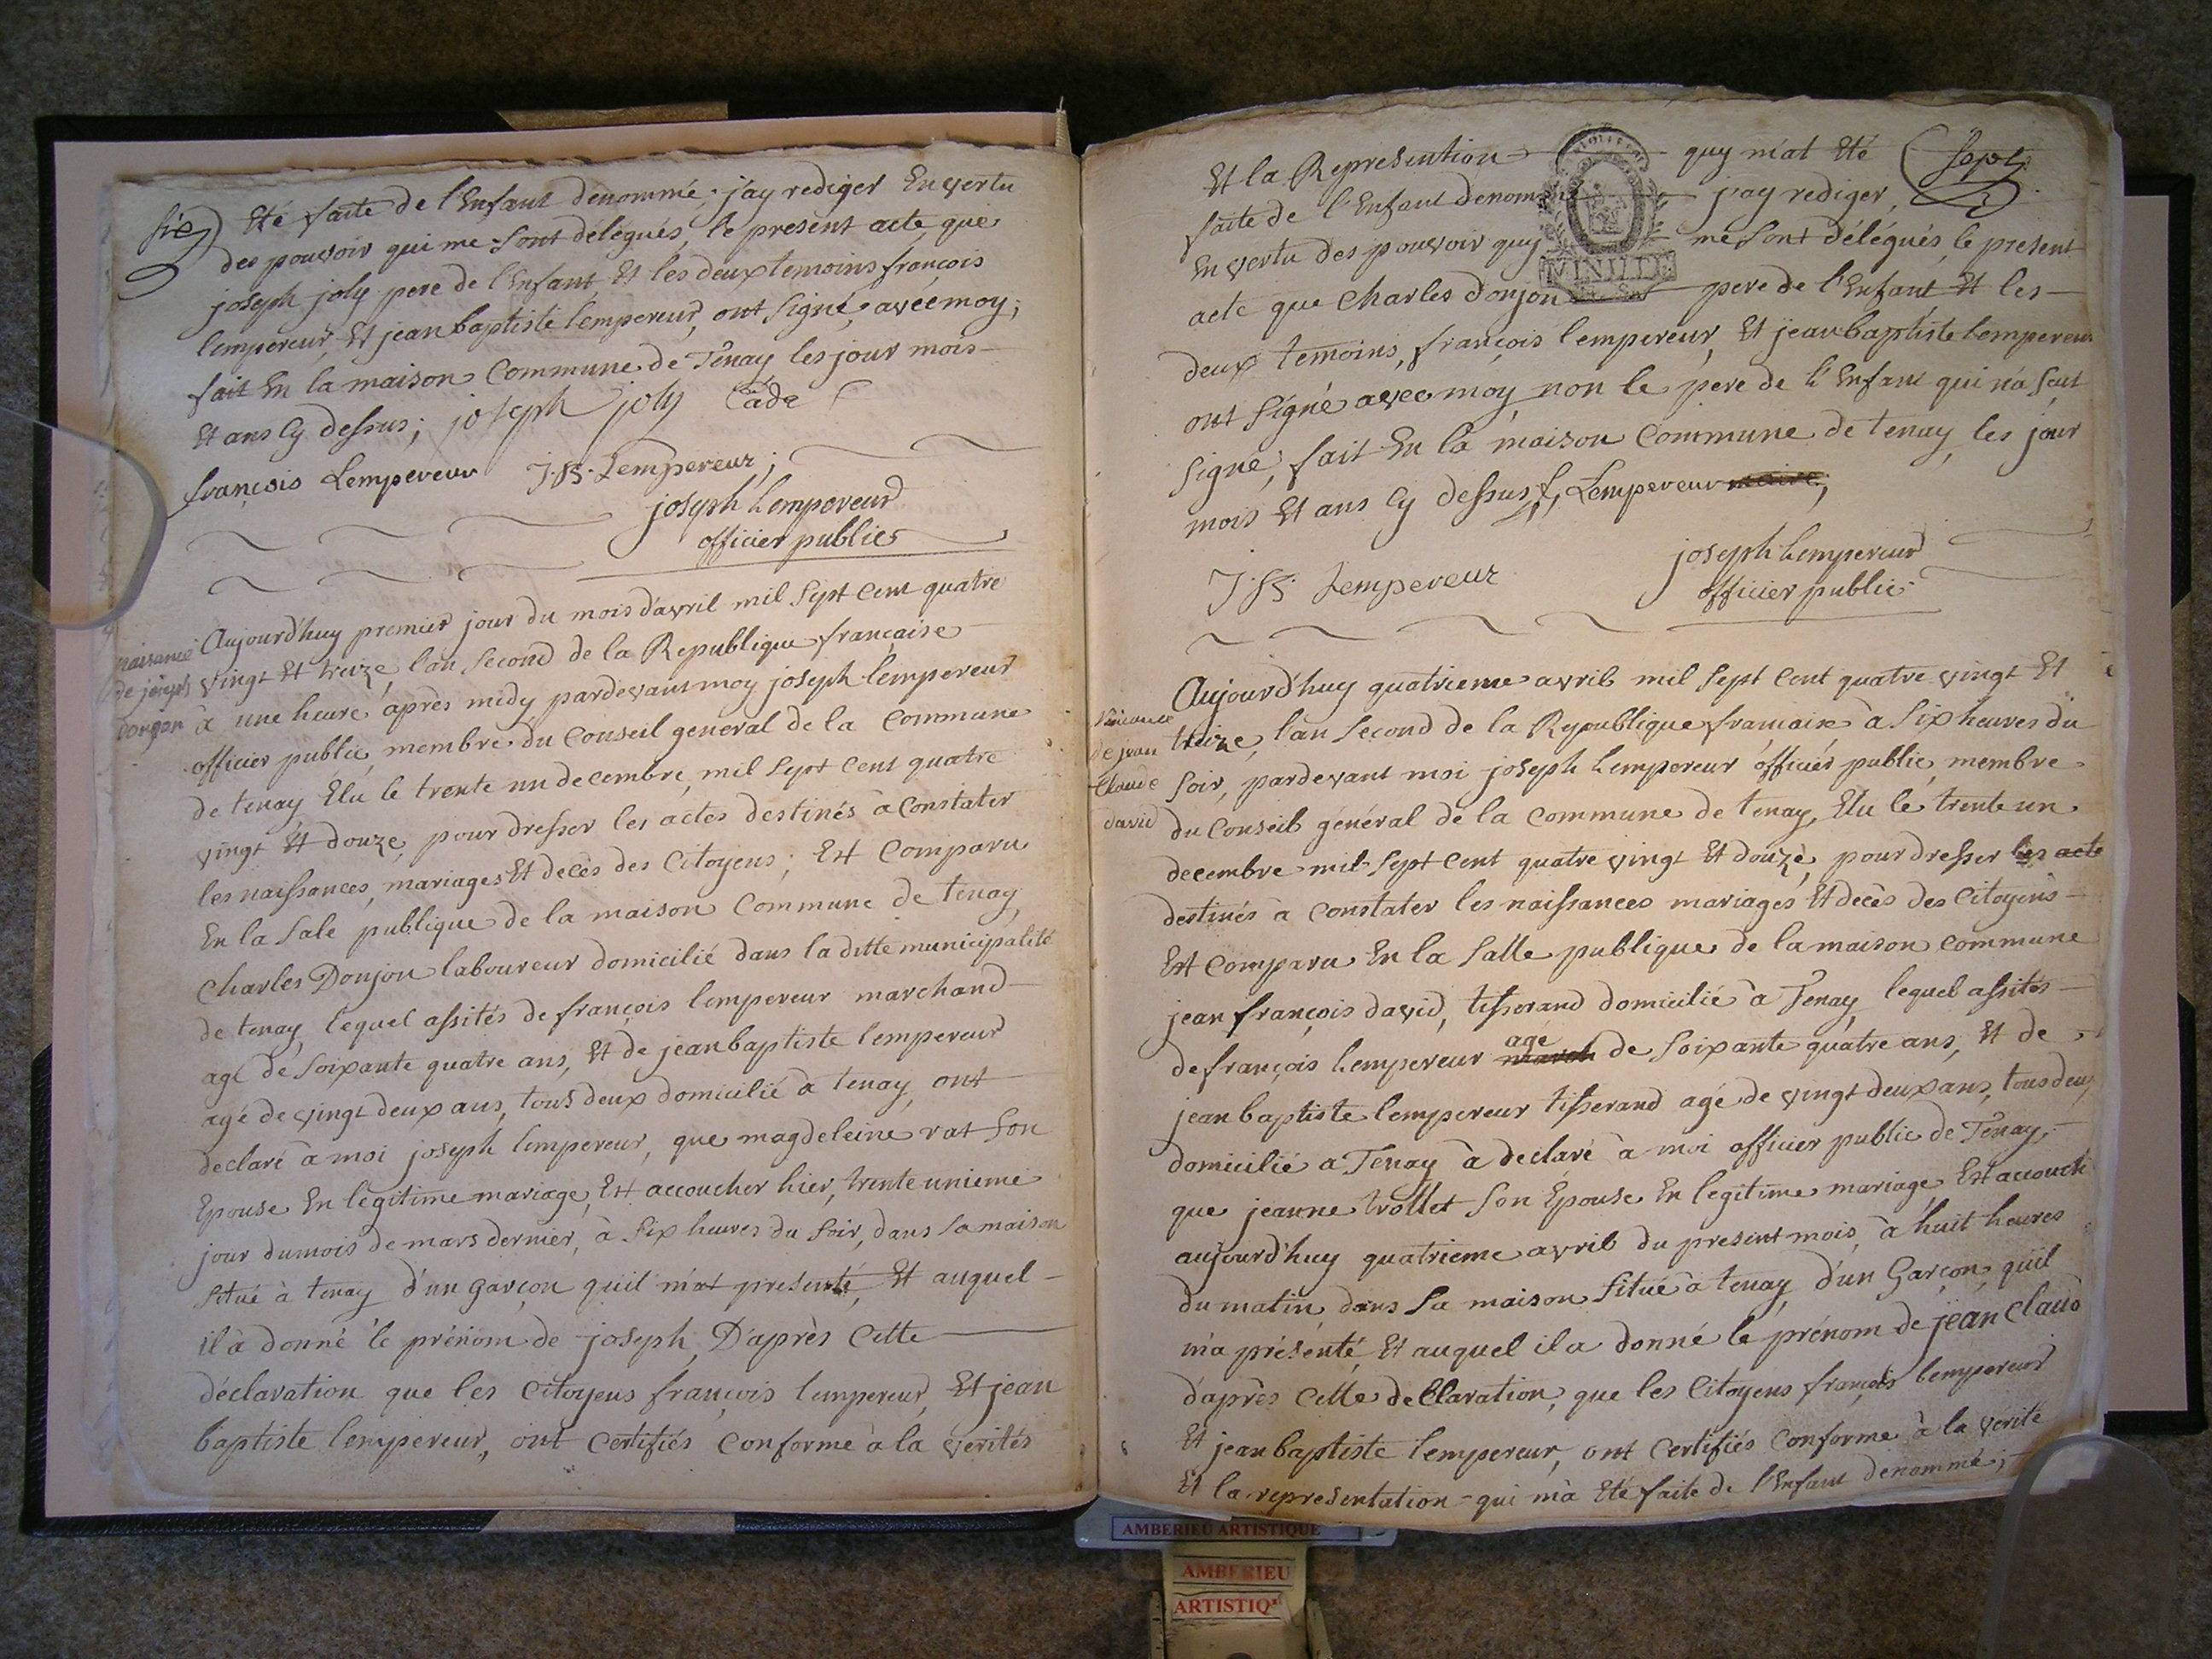 six
Eté faite de l'Enfant denommé; j'ay rediger En vertu
des pouvoir qui me sont délégués, le present acte, que
joseph joly pere de l'Enfant, Et les deux temoins françois
lempereur, Et jean baptiste lempereur, ont signé, avec moy;
fait En la maison Commune de Tenay, les jour mois
Et ans Cy dessus; joseph joly
françois Lempereur J.B. Lempereur;
joseph Lempereur
officier public
naisance
de joseph
donjon
Aujourd'huy premier jour du mois d'avril mil sept Cent quatre
vingt Et treize, l'an second de la Republique française
à une heure après midy pardevant moy joseph lempereur
officier public, membre du Conseil general de la Commune
de tenay Elu le trente un decembre, mil sept cent quatre
vingt Et douze, pour dresser les actes destinés à Constater
les naissances, mariages Et decès des Citoyens; Est Comparu
En la sale publique de la maison Commune de tenay,
Charles Donjon laboureur domicilié dans la ditte municipalité
de tenay, lequel assités de françois lempereur marchand
agé de soixante quatre ans, Et de jean baptiste lempereur
agé de vingt deux ans, tous deux domicilié à tenay, ont
declaré à moi joseph lempereur, que magdeleine rat son
Epouse En legitime mariage, Est accoucher hier, trente unieme
jour du mois de mars dernier, à six heures du soir, dans sa maison
situé à tenay d'un garçon quil m'at presenté, Et auquel
il à donné le prénom de joseph, D'après Cette
déclaration que les Citoyens françois lempereur, Et jean
baptiste lempereur, ont Certifiés Conforme à la verités
Et la Represention quy m'at Eté
sept
faite de l'Enfant denommé j'ay rediger,
En vertu des pouvoir quy me sont délégués, le present
acte que Charles donjon pere de l'Enfant Et les
deux temoins, françois lempereur, Et jean baptiste lempereur
ont signé avec moy non le pere de l'Enfant qui n'a seut
signé, fait En la maison Commune de tenay, les jour
mois Et ans Cy dessus f, Lempereur maire,
J.B. Lempereur
joseph Lempereur
officier public
Naisance
de jean
Claude
david
Aujourd'huy quatrieme avril mil sept Cent quatre vingt Et
treize, l'an second de la Republique francaise à six heures du
soir, pardevant moi joseph Lempereur officiés public, membre
du Conseil général de la Commune de tenay, Elu le trente un
decembre mil sept Cent quatre vingt Et douze, pour dresser les acte
destinés à Constater les naissances mariages Et decès des Citoyens
Est Comparu En la salle publique de la maison Commune
jean françois david, tisserand domicilié à Tenay lequel assités
de françois Lempereur march agé de soixante quatre ans, Et de
jean baptiste lempereur tisserand agé de vingt deux ans, tous deux
domicilié à Tenay à declaré à moi officier public de Tenay,
que jeanne trollet son Epouse En legitime mariage Est accouché
aujourd'huy quatrieme avril du present mois, à huit heures
du matin dans sa maison situé à tenay d'un Garçon, qu'il
m'a présenté, Et auquel il a donné le prénom de jean Claud
d'après Cette declaration, que les Citoyens françois lempereur
Et jean baptiste lempereur, ont Certifiés Conforme à la verité
Et la representation qui m'à Eté faite de l'Enfant denommé;
AMBERIEU ARTISTIQUE
AMBERIEU
ARTISTIQ